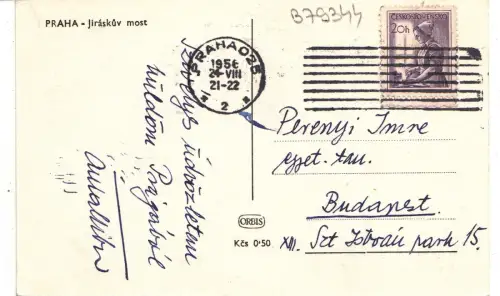 PRAHA - Jiráskův most
B79344
PRAHA 025
1956
24 VIII
21-22
2
ČESKOSLOVENSKO
20h
Szívélyes üdvözletem
küldöm Prágából
Perenyi Imre
egyet. tan.
Budapest.
XII. Szt István park 15.
ORBIS
Kčs 0·50